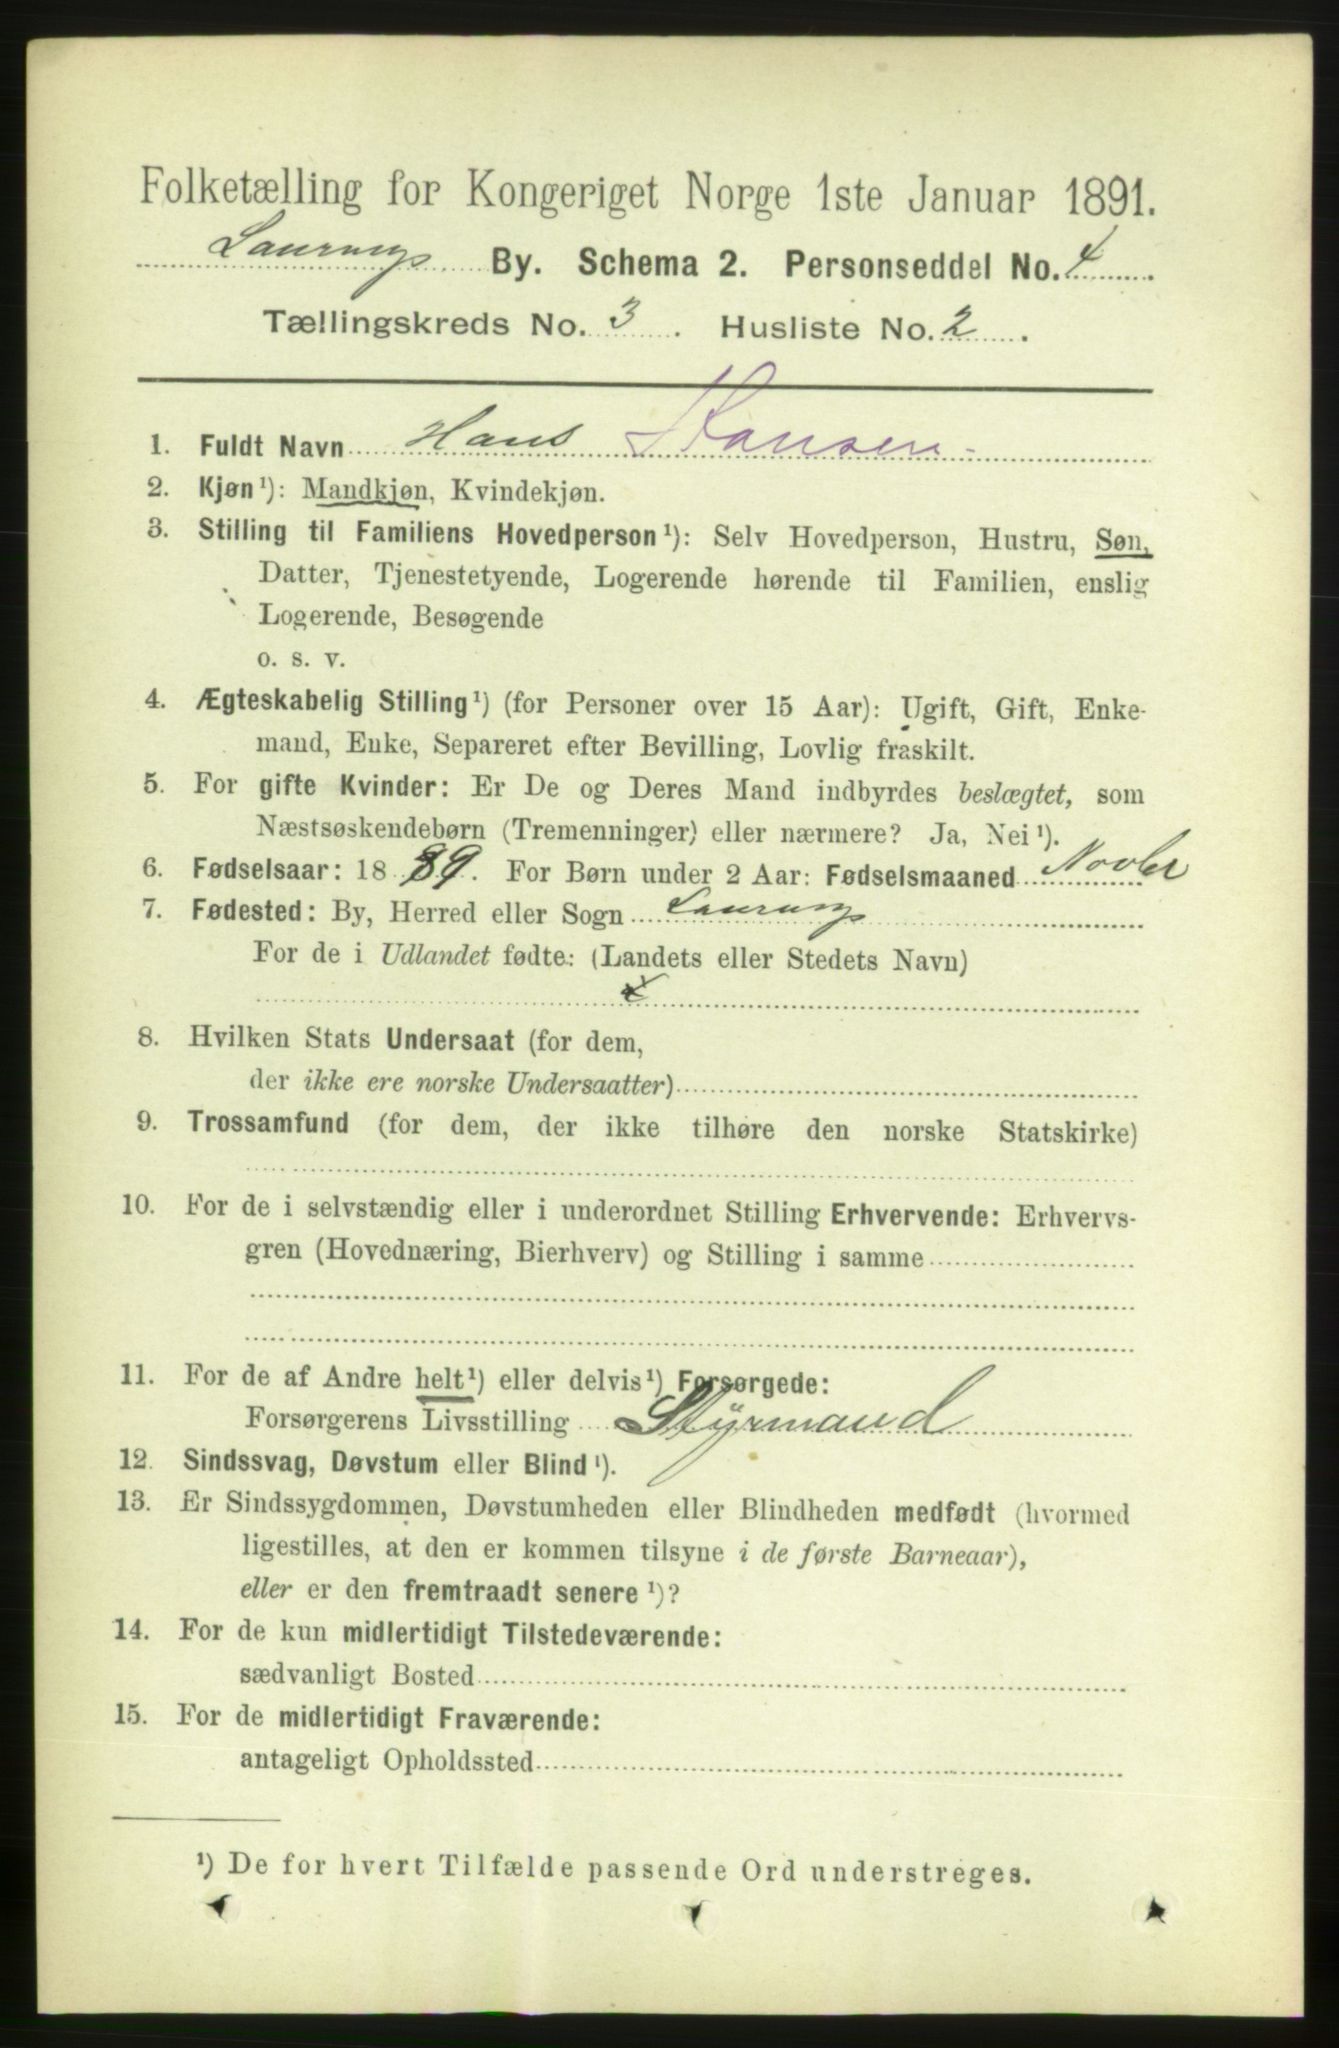 Folketælling for Kongeriget Norge 1ste Januar 1891.
Laurvigs By. Schema 2. Personseddel No. 4.
Tællingskreds No. 3. Husliste No. 2.
1. Fuldt Navn Hans Hansen
2. Kjøn¹): Mandkjøn, Kvindekjøn.
3. Stilling til Familiens Hovedperson¹): Selv Hovedperson, Hustru, Søn,
Datter, Tjenestetyende, Logerende hørende til Familien, enslig
Logerende, Besøgende
o. s. v.
4. Ægteskabelig Stilling¹) (for Personer over 15 Aar): Ugift, Gift, Enke-
mand, Enke, Separeret efter Bevilling, Lovlig fraskilt.
5. For gifte Kvinder: Er De og Deres Mand indbyrdes beslægtet, som
Næstsøskendebørn (Tremenninger) eller nærmere? Ja, Nei¹).
6. Fødselsaar: 1889. For Børn under 2 Aar: Fødselsmaaned Novber
7. Fødested: By, Herred eller Sogn Laurvig
For de i Udlandet fødte: (Landets eller Stedets Navn)
x
8. Hvilken Stats Undersaat (for dem,
der ikke ere norske Undersaatter)
9. Trossamfund (for dem, der ikke tilhøre den norske Statskirke)
10. For de i selvstændig eller i underordnet Stilling Erhvervende: Erhvervs-
gren (Hovednæring, Bierhverv) og Stilling i samme
11. For de af Andre helt¹) eller delvis¹) Forsørgede:
Forsørgerens Livsstilling Styrmand
12. Sindssvag, Døvstum eller Blind¹).
13. Er Sindssygdommen, Døvstumheden eller Blindheden medfødt (hvormed
ligestilles, at den er kommen tilsyne i de første Barneaar),
eller er den fremtraadt senere¹)?
14. For de kun midlertidigt Tilstedeværende:
sædvanligt Bosted
15. For de midlertidigt Fraværende:
antageligt Opholdssted
¹) De for hvert Tilfælde passende Ord understreges.